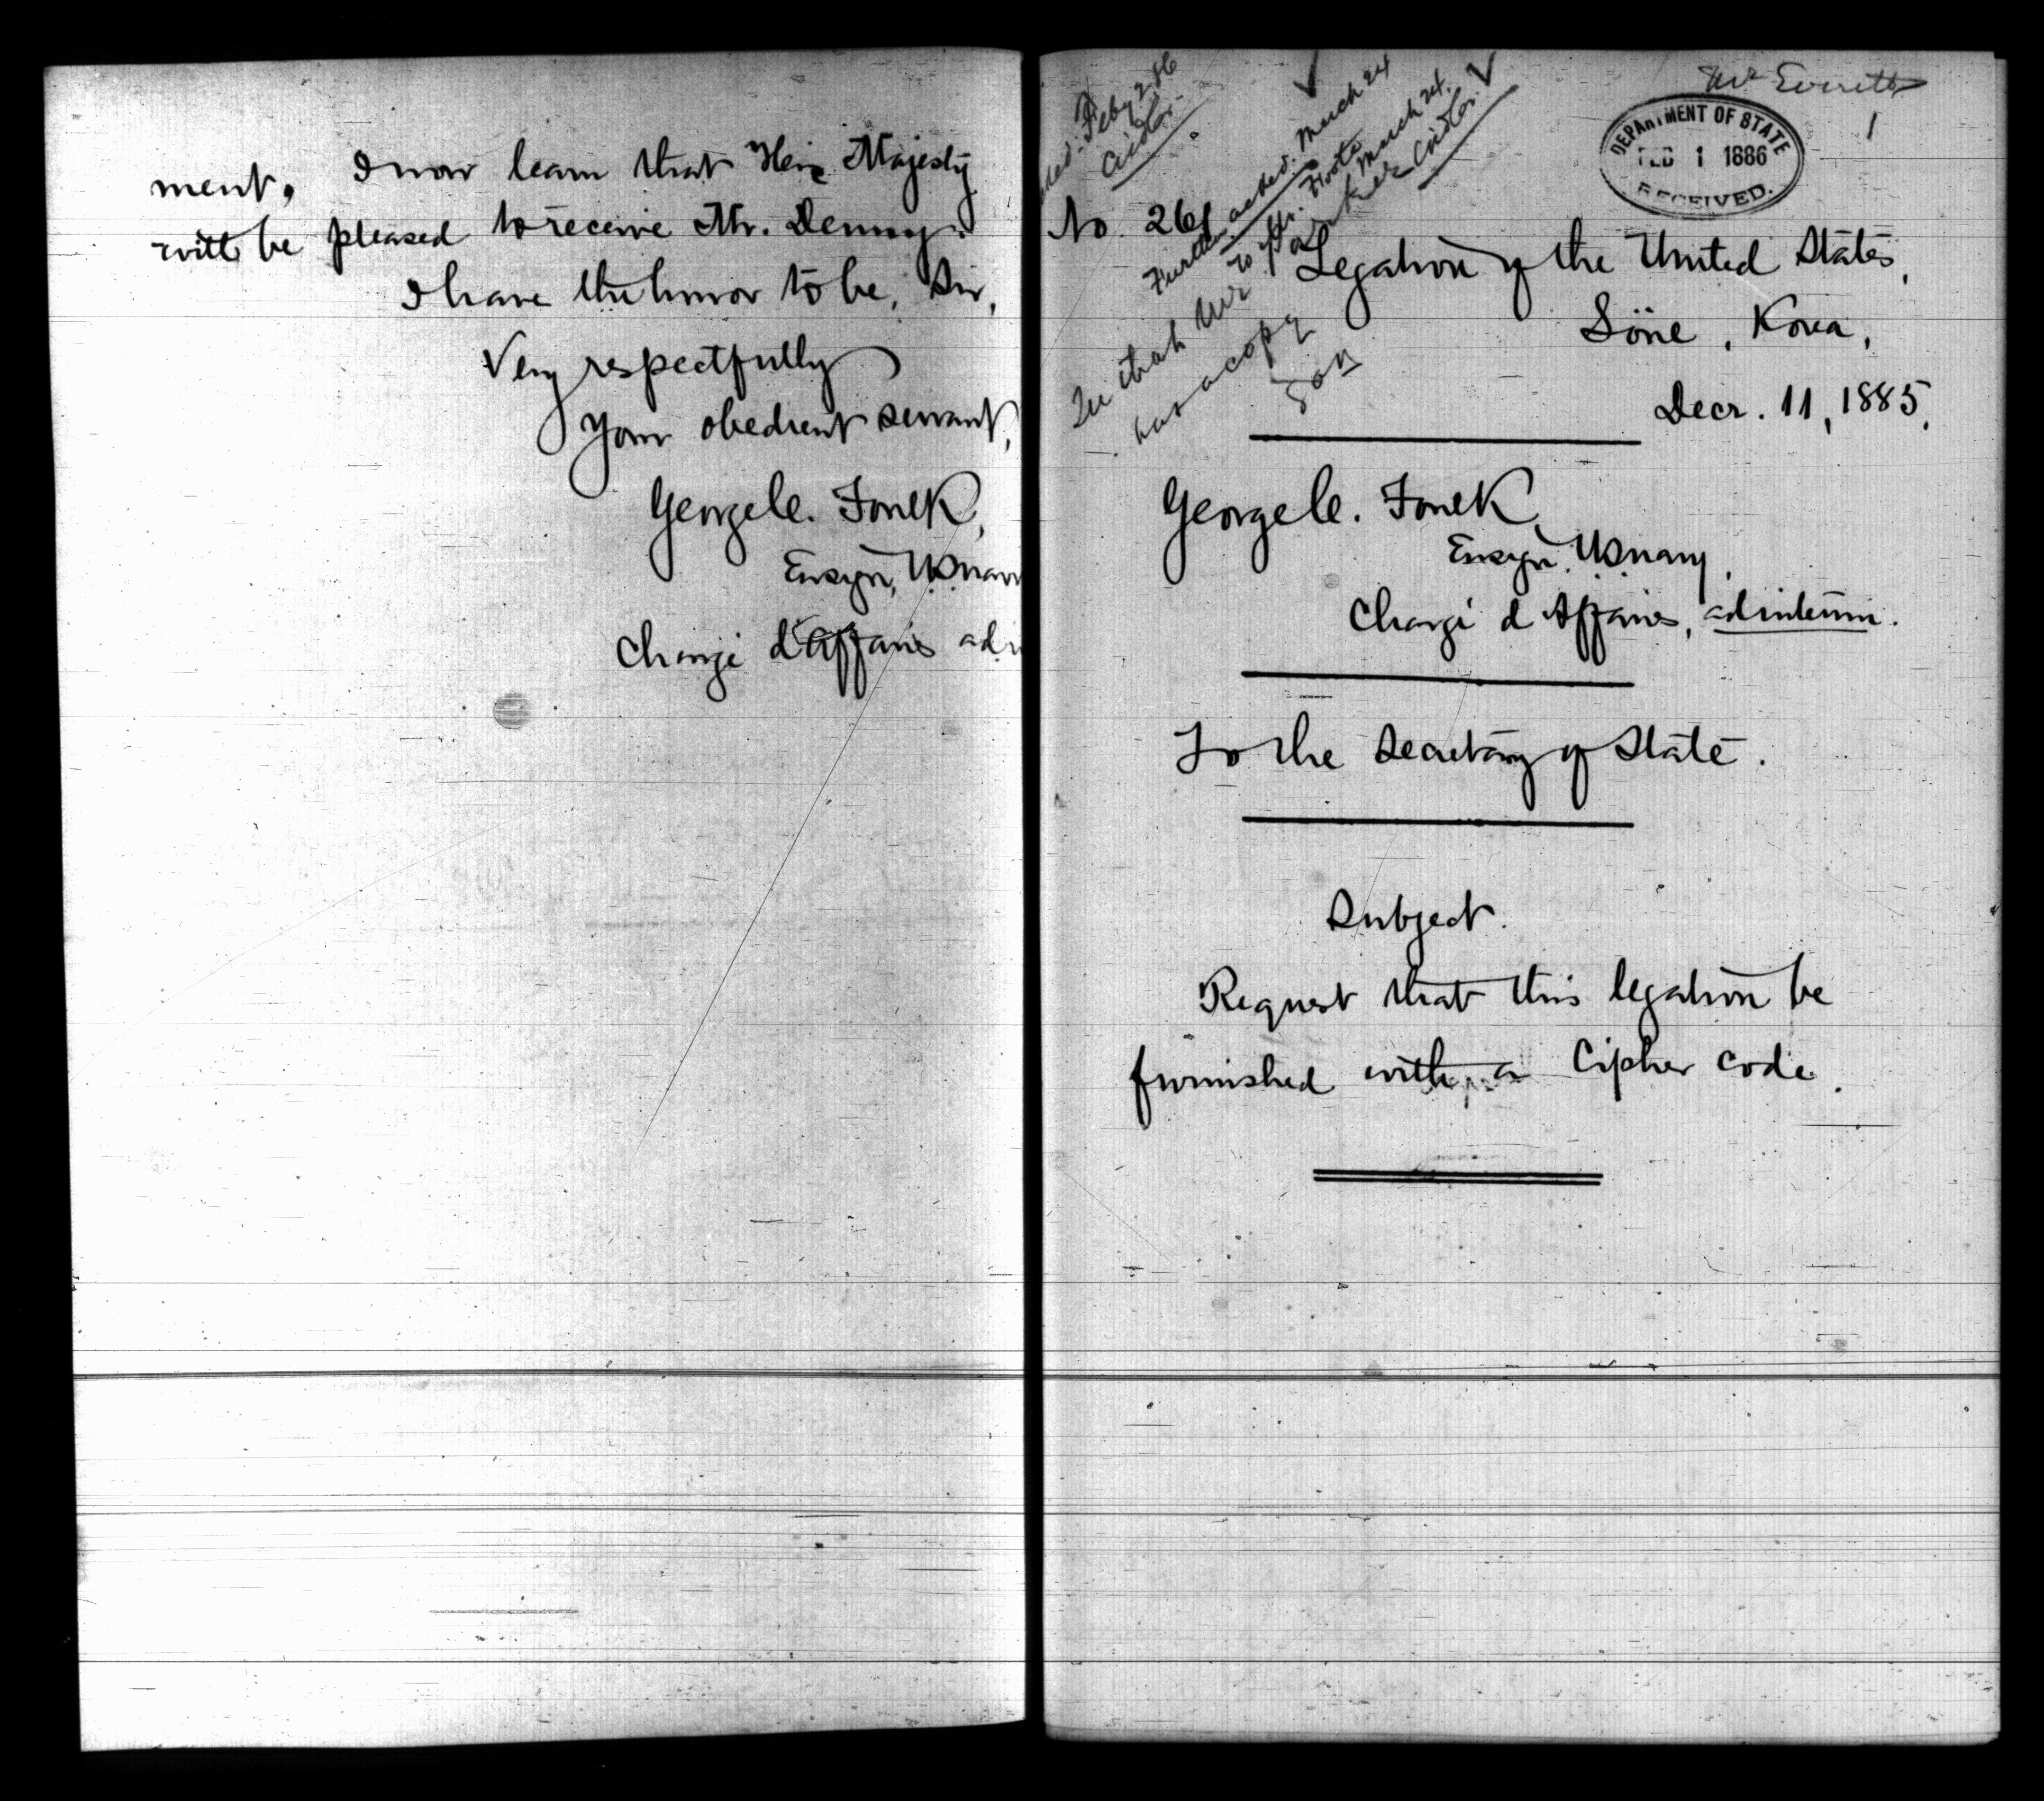 ment. I now learn that His Majesty
will be pleased to receive Mr. Denny.
I have the honor to be, Sir,
Very respectfully
Your obedient servant,
George C. Foulk,
Ensign, U.S. Navy
Chargé d'Affaires ad
Feby 2 86
Cridler.
Further acked. March 24
to Mr. Foote
Parker March 24.
Cridler.
has a copy
Mr Everett
1
DEPARTMENT OF STATE
FEB 1 1886
RECEIVED.
No. 261
Legation of the United States,
Söul, Korea,
Decr. 11, 1885.
George C. Foulk,
Ensign, U.S. Navy,
Chargé d'Affaires, ad interim.
To the Secretary of State.
Subject.
Request that this legation be
furnished with a Cipher code.